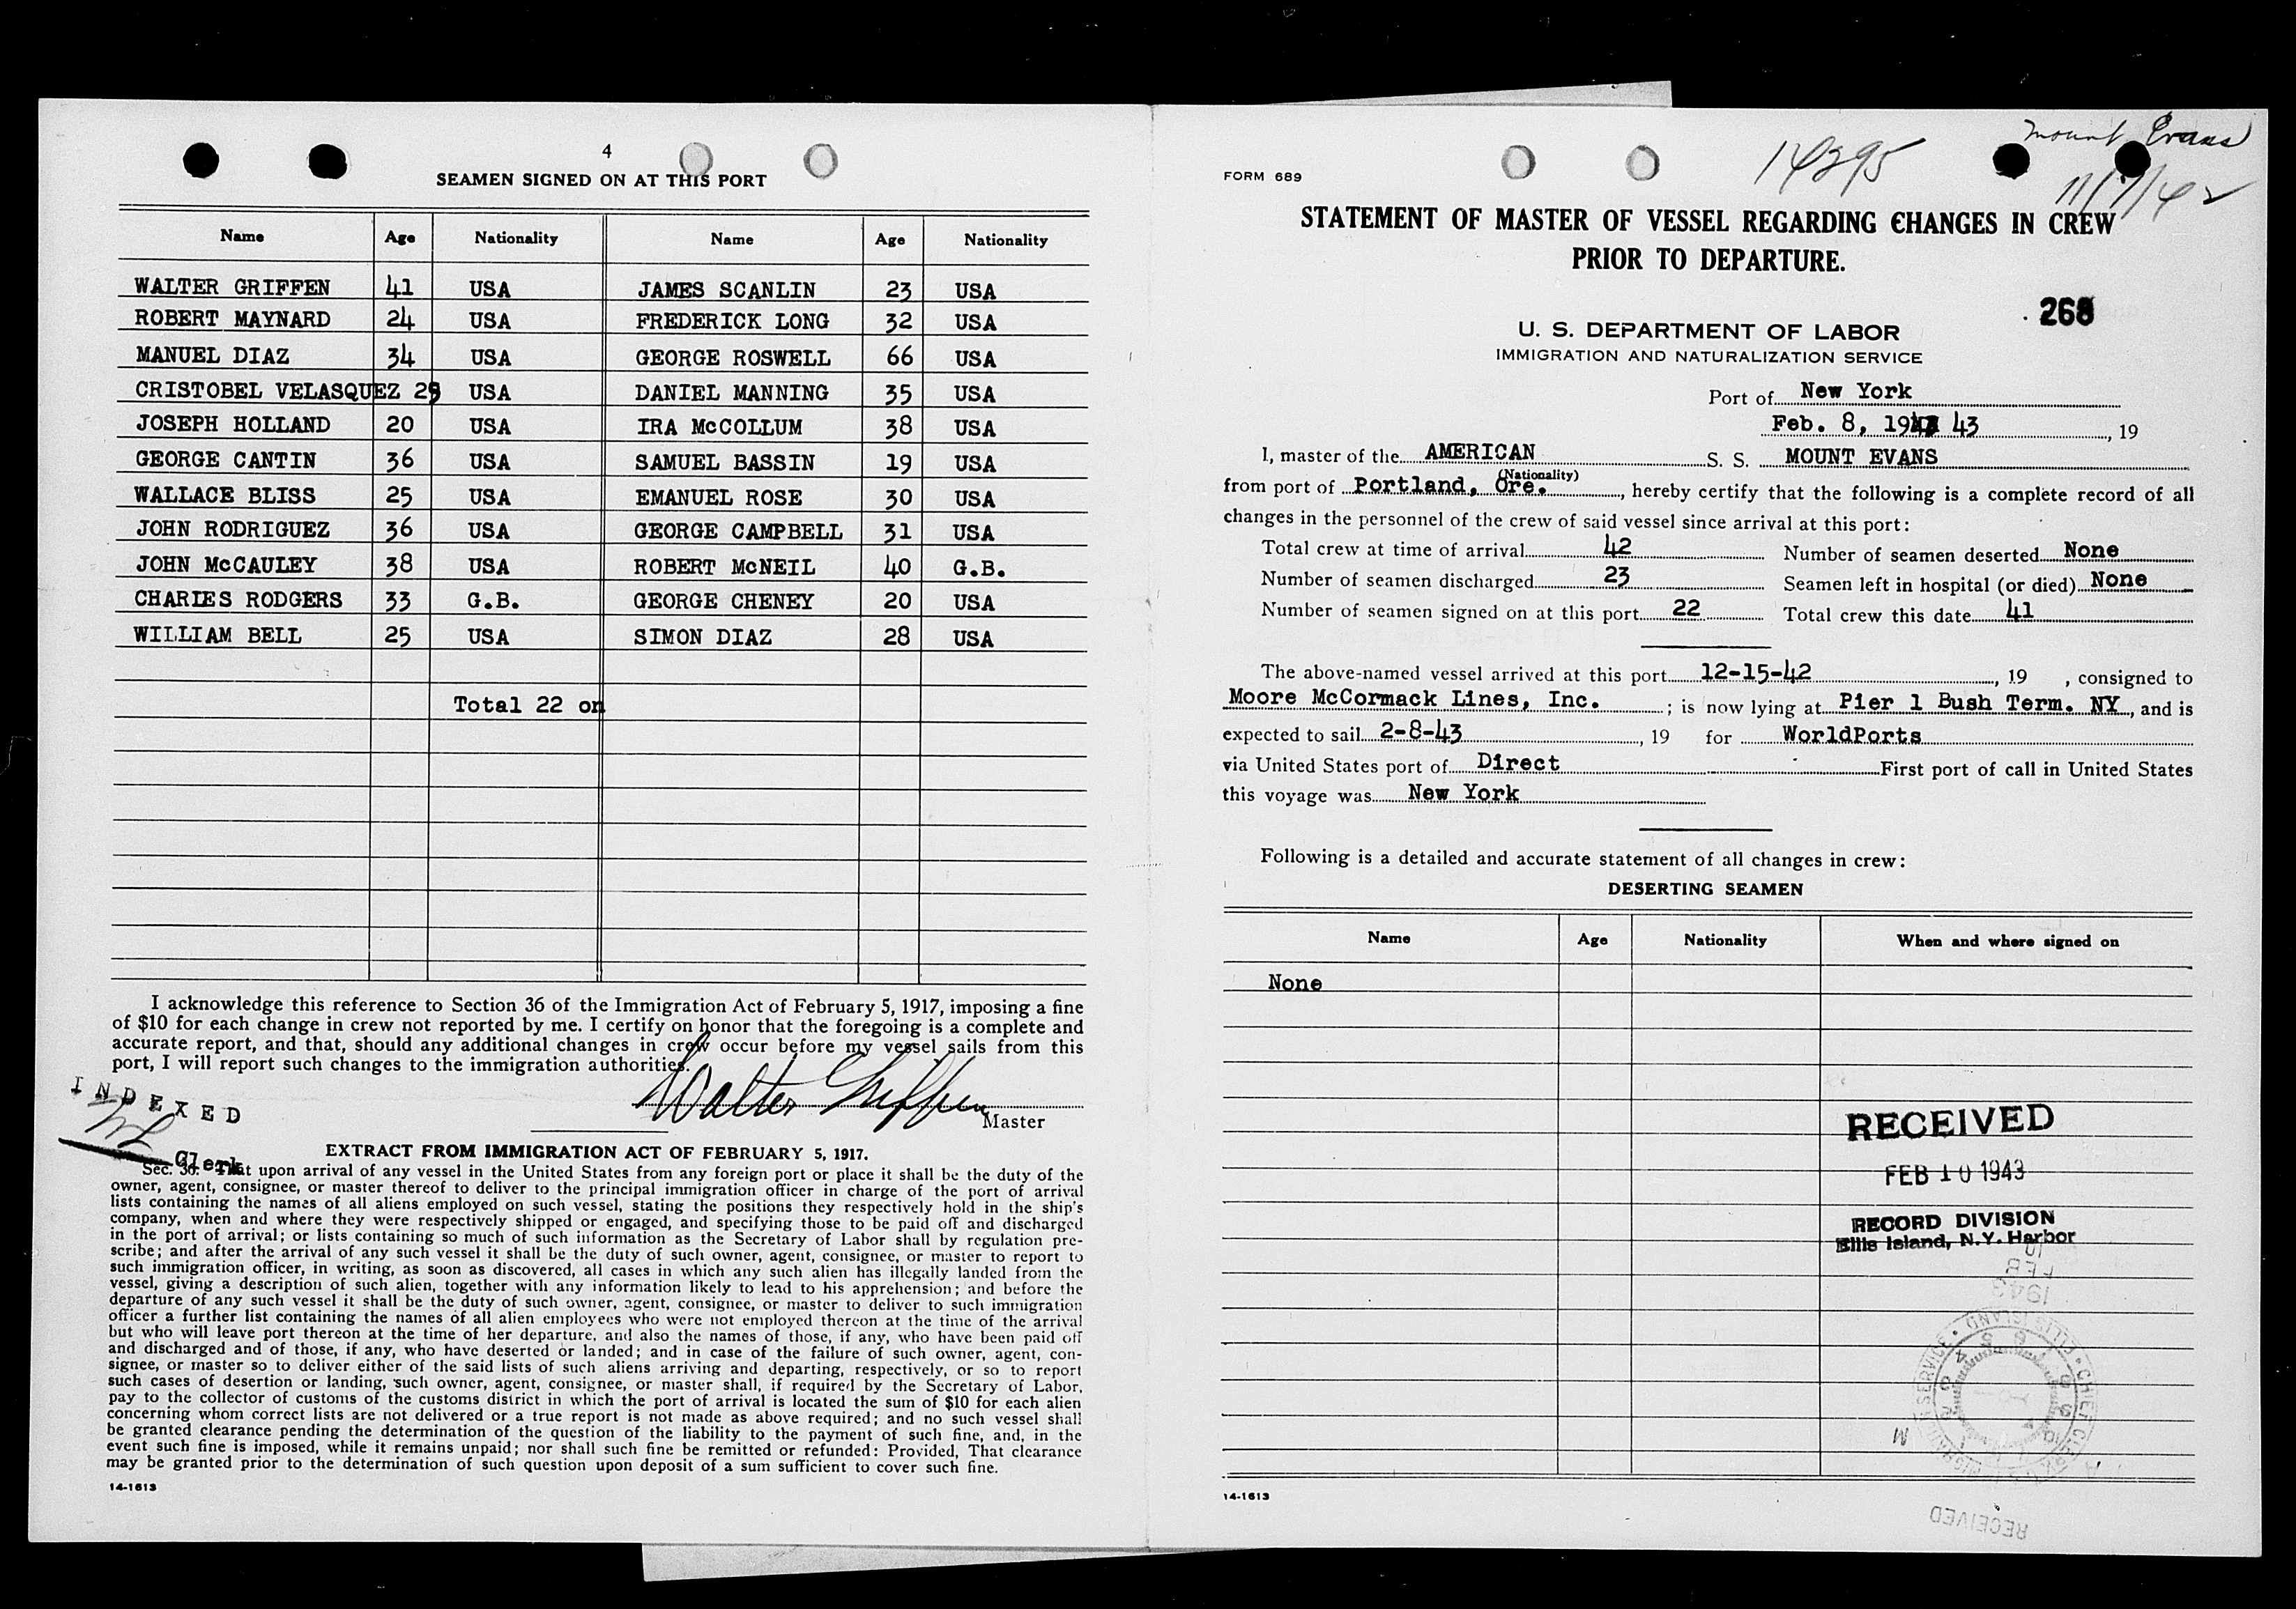 4
SEAMEN SIGNED ON AT THIS PORT
Name Age Nationality Name Age Nationality
WALTER GRIFFEN 41 USA JAMES SCANLIN 23 USA
ROBERT MAYNARD 24 USA FREDERICK LONG 32 USA
MANUEL DIAZ 34 USA GEORGE ROSWELL 66 USA
CRISTOBEL VELASQUEZ USA DANIEL MANNING 35 USA
JOSEPH HOLLAND 20 USA IRA McCOLLUM 38 USA
GEORGE CANTIN 36 USA SAMUEL BASSIN 19 USA
WALLACE BLISS 25 USA EMANUEL ROSE 30 USA
JOHN RODRIGUEZ 36 USA GEORGE CAMPBELL 31 USA
JOHN McCAULEY 38 USA ROBERT McNEIL 40 G.B.
CHARLES RODGERS 33 G.B. GEORGE CHENEY 20 USA
WILLIAM BELL 25 USA SIMON DIAZ 28 USA
Total 22 on
I acknowledge this reference to Section 36 of the Immigration Act of February 5, 1917, imposing a fine
of $10 for each change in crew not reported by me. I certify on honor that the foregoing is a complete and
accurate report, and that, should any additional changes in crew occur before my vessel sails from this
port, I will report such changes to the immigration authorities.
INDEXED
Walter Griffen
Master
Clerk
EXTRACT FROM IMMIGRATION ACT OF FEBRUARY 5, 1917.
Sec. 36. That upon arrival of any vessel in the United States from any foreign port or place it shall be the duty of the
owner, agent, consignee, or master thereof to deliver to the principal immigration officer in charge of the port of arrival
lists containing the names of all aliens employed on such vessel, stating the positions they respectively hold in the ship's
company, when and where they were respectively shipped or engaged, and specifying those to be paid off and discharged
in the port of arrival; or lists containing so much of such information as the Secretary of Labor shall by regulation pre-
scribe; and after the arrival of any such vessel it shall be the duty of such owner, agent, consignee, or master to report to
such immigration officer, in writing, as soon as discovered, all cases in which any such alien has illegally landed from the
vessel, giving a description of such alien, together with any information likely to lead to his apprehension; and before the
departure of any such vessel it shall be the duty of such owner, agent, consignee, or master to deliver to such immigration
officer a further list containing the names of all alien employees who were not employed thereon at the time of the arrival
but who will leave port thereon at the time of her departure, and also the names of those, if any, who have been paid off
and discharged and of those, if any, who have deserted or landed; and in case of the failure of such owner, agent, con-
signee, or master so to deliver either of the said lists of such aliens arriving and departing, respectively, or so to report
such cases of desertion or landing, such owner, agent, consignee, or master shall, if required by the Secretary of Labor,
pay to the collector of customs of the customs district in which the port of arrival is located the sum of $10 for each alien
concerning whom correct lists are not delivered or a true report is not made as above required; and no such vessel shall
be granted clearance pending the determination of the question of the liability to the payment of such fine, and, in the
event such fine is imposed, while it remains unpaid; nor shall such fine be remitted or refunded: Provided, That clearance
may be granted prior to the determination of such question upon deposit of a sum sufficient to cover such fine.
14-1613
Mount Evans
14395
11/7/42
FORM 689
STATEMENT OF MASTER OF VESSEL REGARDING CHANGES IN CREW
PRIOR TO DEPARTURE.
268
U. S. DEPARTMENT OF LABOR
IMMIGRATION AND NATURALIZATION SERVICE
Port of New York
Feb. 8, 19 43, 19
I, master of the AMERICAN S. S. MOUNT EVANS
(Nationality)
from port of Portland, Ore., hereby certify that the following is a complete record of all
changes in the personnel of the crew of said vessel since arrival at this port:
Total crew at time of arrival 42 Number of seamen deserted None
Number of seamen discharged 23 Seamen left in hospital (or died) None
Number of seamen signed on at this port 22 Total crew this date 41
The above-named vessel arrived at this port 12-15-42, 19 , consigned to
Moore McCormack Lines, Inc. ; is now lying at Pier 1 Bush Term. NY, and is
expected to sail 2-8-43, 19 for WorldPorts
via United States port of Direct First port of call in United States
this voyage was New York
Following is a detailed and accurate statement of all changes in crew:
DESERTING SEAMEN
Name Age Nationality When and where signed on
None
RECEIVED
FEB 10 1943
RECORD DIVISION
Ellis Island, N.Y. Harbor
14-1613
RECEIVED